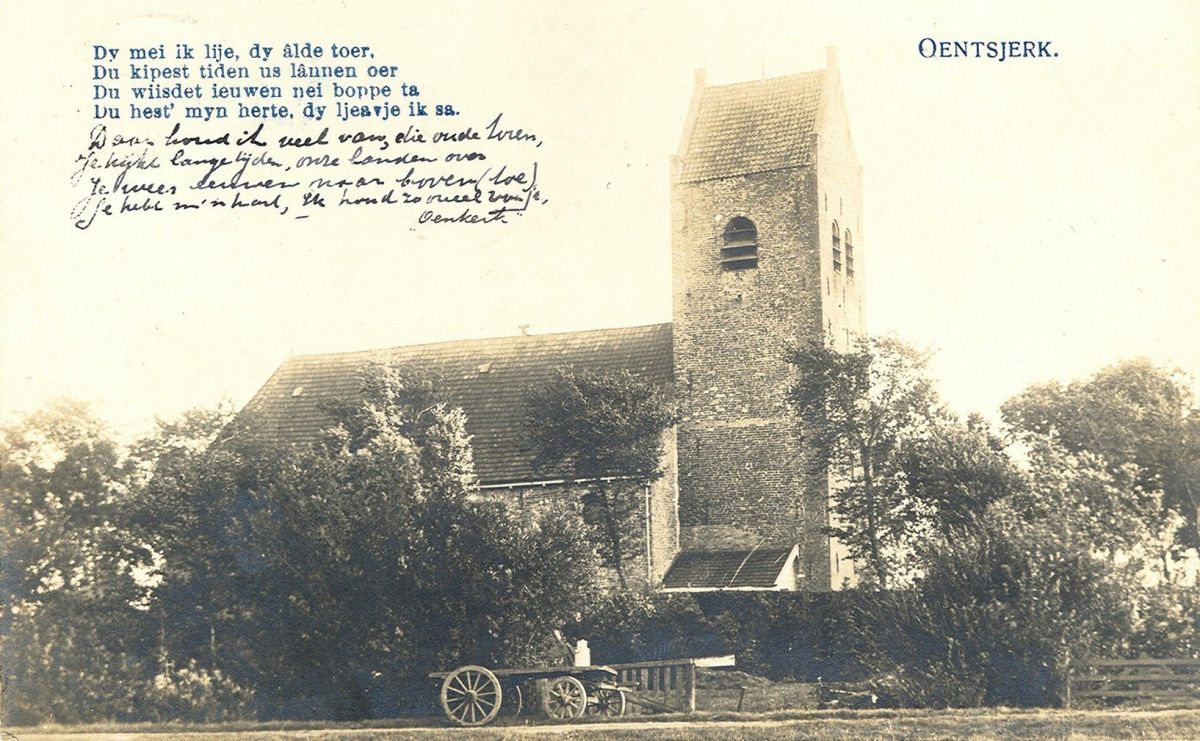 Dy mei ik lije, dy âlde toer,
Du kipest tiden us lânnen oer
Du wiisdet ieuwen nei boppe ta
Du hest' myn herte, dy ljeavje ik sa.
Daar houd ik veel van, die oude toren,
Je kijkt lange tijden, onze landen over
Je wees eeuwen naar boven (toe)
Je hebt m'n hart, Ik houd zooveel van je,
"Oenkerk"
OENTSJERK.